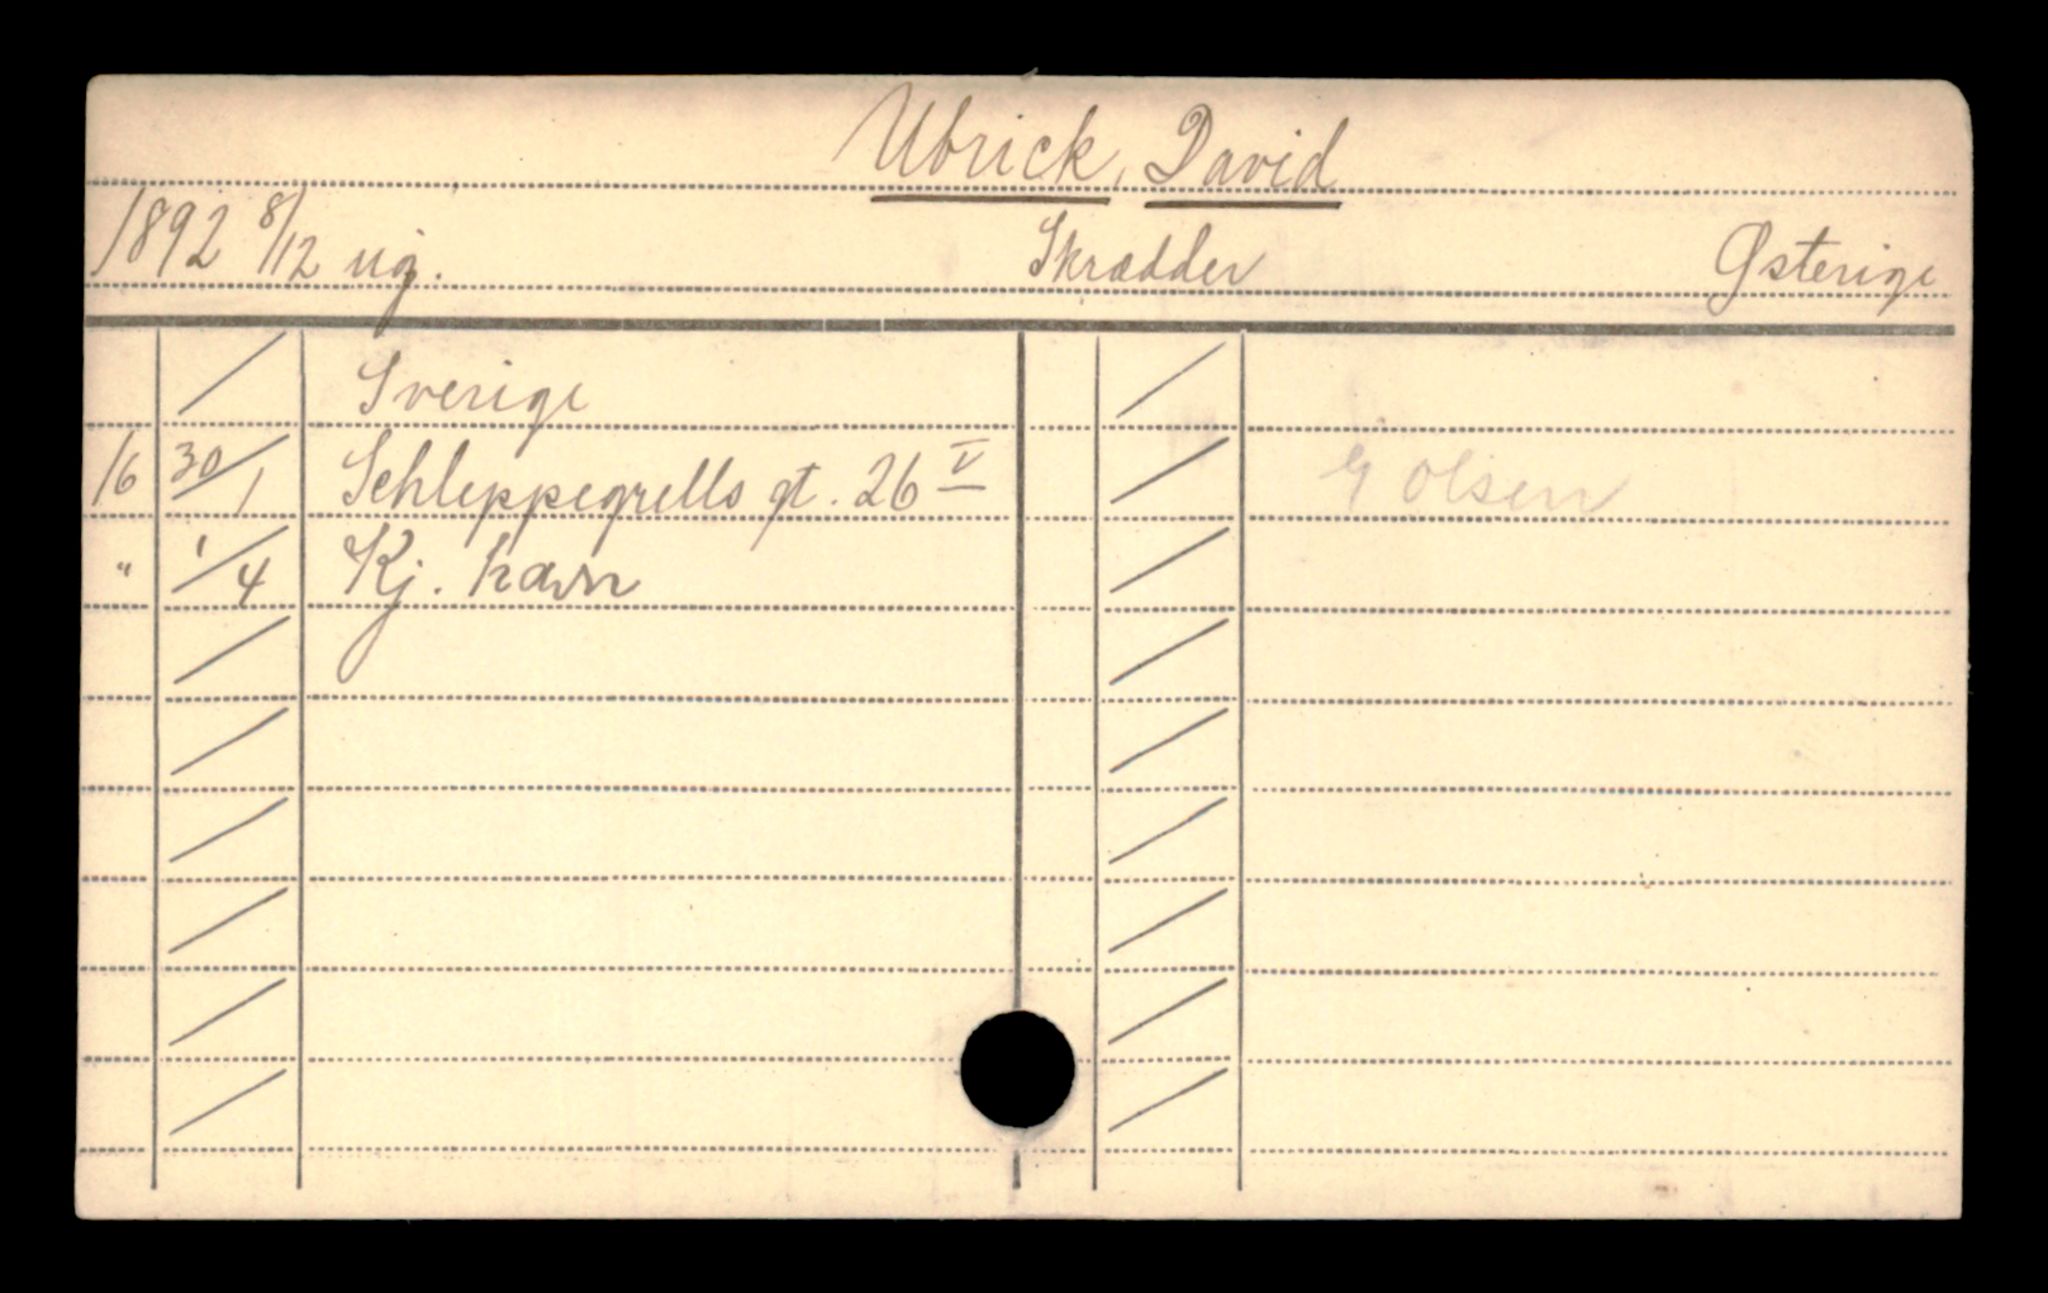 Ubrick, David
1892 8/12 ug. Skrædder Østerige
/ Sverige
16 30/1 Schleppegrells gt. 26 V Olsen
" 1/4 Kj. havn